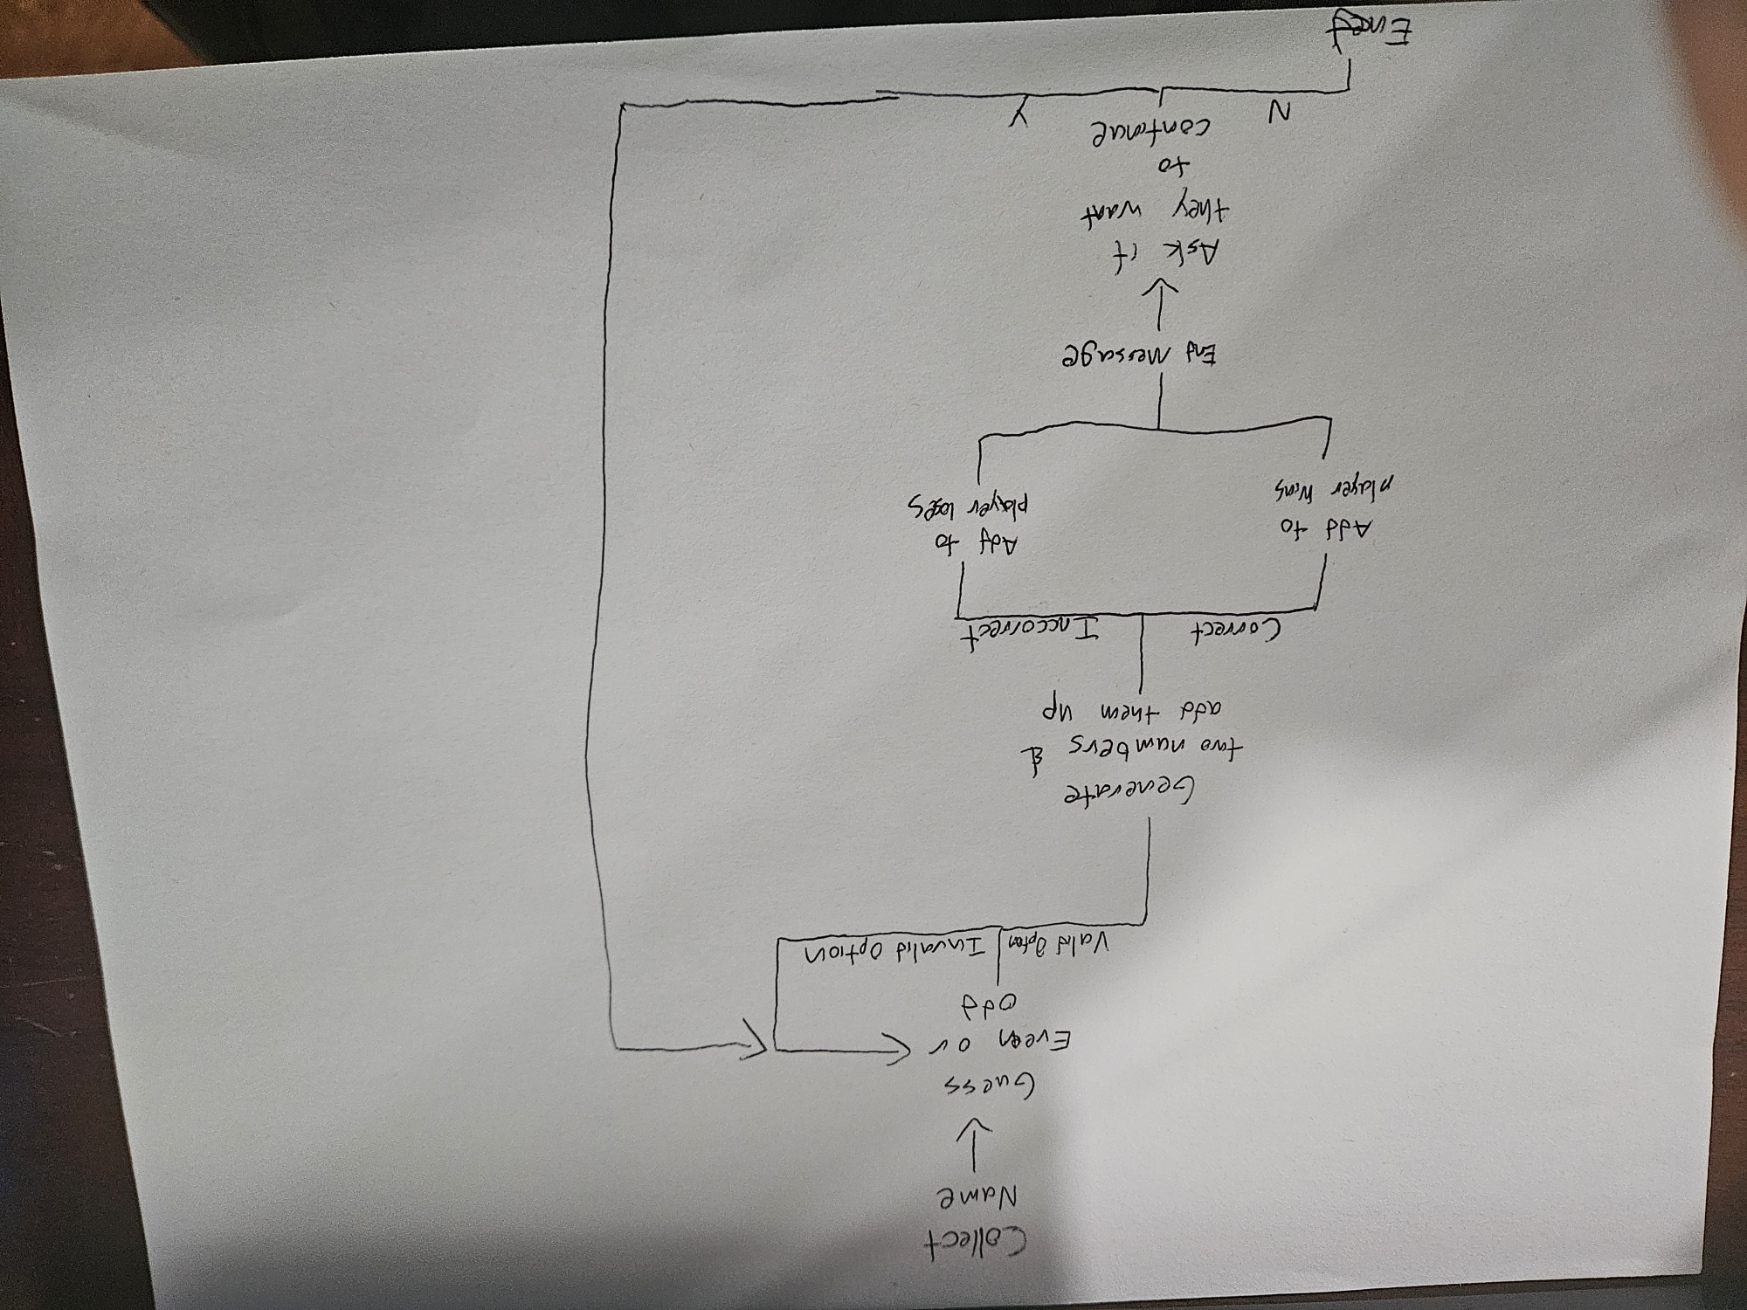 Collect
Name
Guess
Even or
odd
Valid Option
Invalid Option
Generate
two numbers &
add them up
Correct
Inccorrect
Add to
player wins
Add to
player loses
End Message
Ask if
they want
to
continue
N
Y
End